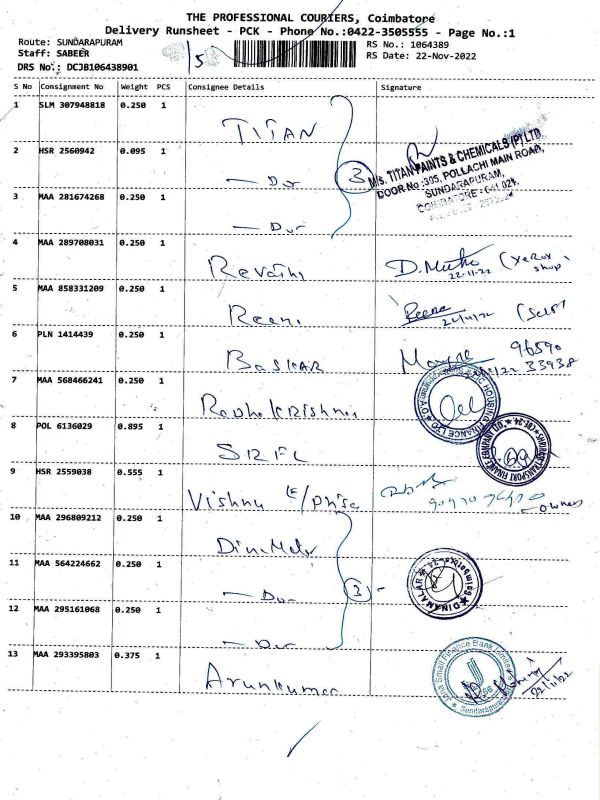 THE PROFESSIONAL COURIERS, Coimbatore
Delivery Runsheet - PCK - Phone No.:0422-3505555 - Page No.:1
Route: SUNDARAPURAM
RS No.: 1064389
Staff: SABEER
RS Date: 22-Nov-2022
DRS No.: DCJB106438901
S No Consignment No Weight PCS Consignee Details Signature
1 SLM 307948818 0.250 1 TITAN
2 HSR 2560942 0.095 1 — Do 3
M/S. TITAN PAINTS & CHEMICALS (P) LTD
DOOR No :305, POLLACHI MAIN ROAD,
SUNDARAPURAM,
COIMBATORE - 641 024.
3 MAA 281674268 0.250 1 — Do
4 MAA 289708031 0.250 1 Revathi D. Muthu (xerox shop)
22-11-22
5 MAA 858331209 0.250 1 Reena Reena (Self)
6 PLN 1414439 0.250 1 BASKAR 96590
33938
7 MAA 568466241 0.250 1 Radhakrishnan
8 POL 6136029 0.895 1
SHRIRAM TRANSPORT FINANCE COMPANY LTD. CBE-24
9 HSR 2559038 0.555 1 Vishnu E/prise
— owner
10 MAA 296809212 0.250 1
11 MAA 564224662 0.250 1 — Do 3
DINAMALAR
12 MAA 295161068 0.250 1 — Do
13 MAA 293395803 0.375 1 Arunkumar
Jana Small Finance Bank Limited
Sundarapuram
22/11/22